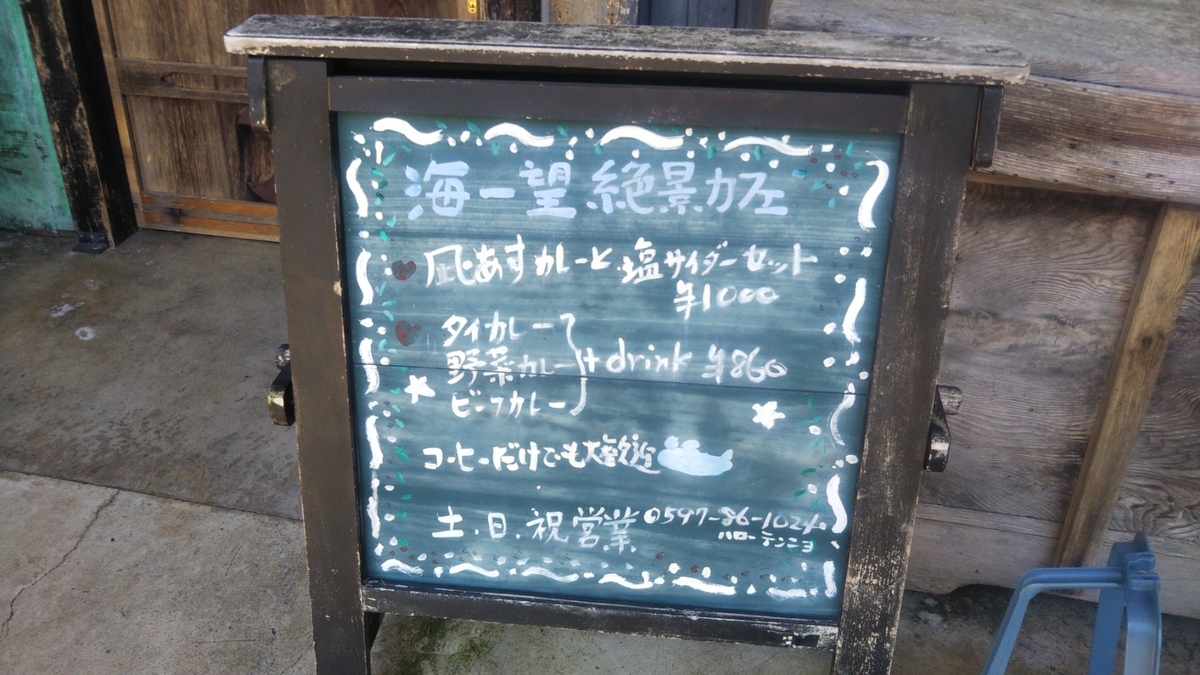 海一望絶景カフェ
凪・あすカレーと塩サイダーセット
¥1000
タイカレー
野菜カレー + drink ¥860
ビーフカレー
コーヒーだけでも大歓迎
土.日.祝営業 0597-86-1024
ハロー テンニョ